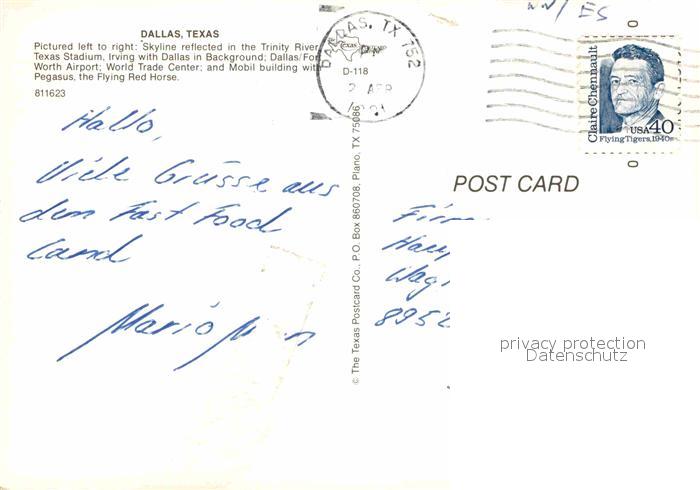 DALLAS, TEXAS
Pictured left to right: Skyline reflected in the Trinity River,
Texas Stadium, Irving with Dallas in Background; Dallas/Fort
Worth Airport; World Trade Center; and Mobil building with
Pegasus, the Flying Red Horse.
811623
Hallo,
Viele Grüsse aus
dem Fast Food
Land
Mario
© The Texas Postcard Co., P.O. Box 860708, Plano, TX 75086
DALLAS, TX 752
Texas
PM
D-118
2 APR
Claire Chennault
USA 40
Flying Tigers, 1940s
POST CARD
8952
privacy protection
Datenschutz